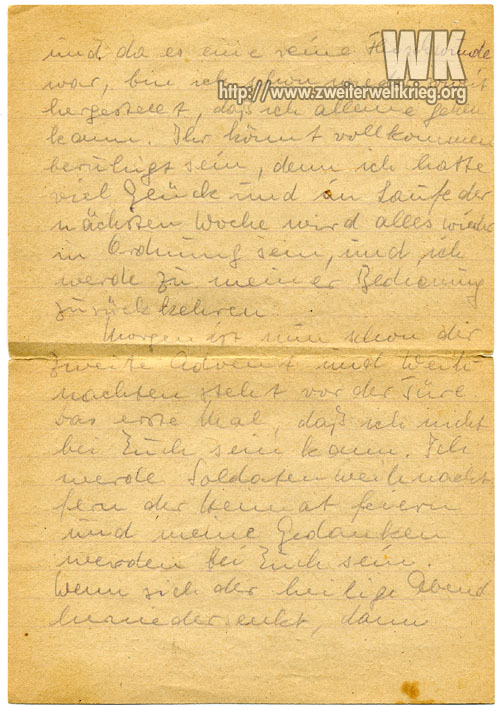 WK
http://www.zweiterweltkrieg.org
und da es eine reine Fleischwunde
war, bin ich schon wieder soweit
hergestellt, daß ich alleine gehen
kann. Ihr könnt vollkommen
beruhigt sein, denn ich hatte
viel Glück und im Laufe der
nächsten Woche wird alles wieder
in Ordnung sein, und ich
werde zu meiner Bedienung
zurückkehren.
Morgen ist nun schon der
zweite Advent und Weih-
nachten steht vor der Türe.
Das erste Mal, daß ich nicht
bei Euch sein kann. Ich
werde Soldatenweihnacht
fern der Heimat feiern
und meine Gedanken
werden bei Euch sein.
Wenn sich der heilige Abend
herniedersenkt, dann